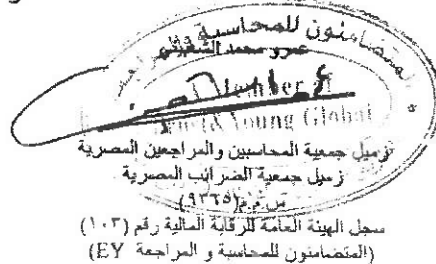 المتضامنون للمحاسبة والمراجعة
عمرو محمد الشعبيني
Member of
Ernst & Young Global
زميل جمعية المحاسبين والمراجعين المصرية
زميل جمعية الضرائب المصرية
س.م.م (٩٣٦٥)
سجل الهيئة العامة للرقابة المالية رقم (١٠٣)
(المتضامنون للمحاسبة و المراجعة EY)